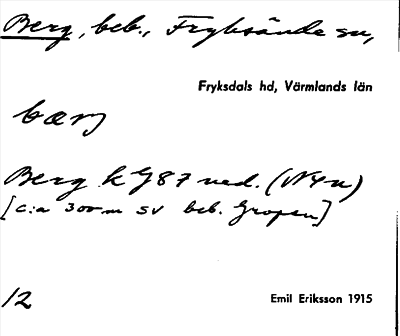 Berg, beb., Fryksände sn,
Fryksdals hd, Värmlands län
bærj
Berg k G87 ned. (N4u)
[c:a 300 m SV beb. Gropen]
12
Emil Eriksson 1915